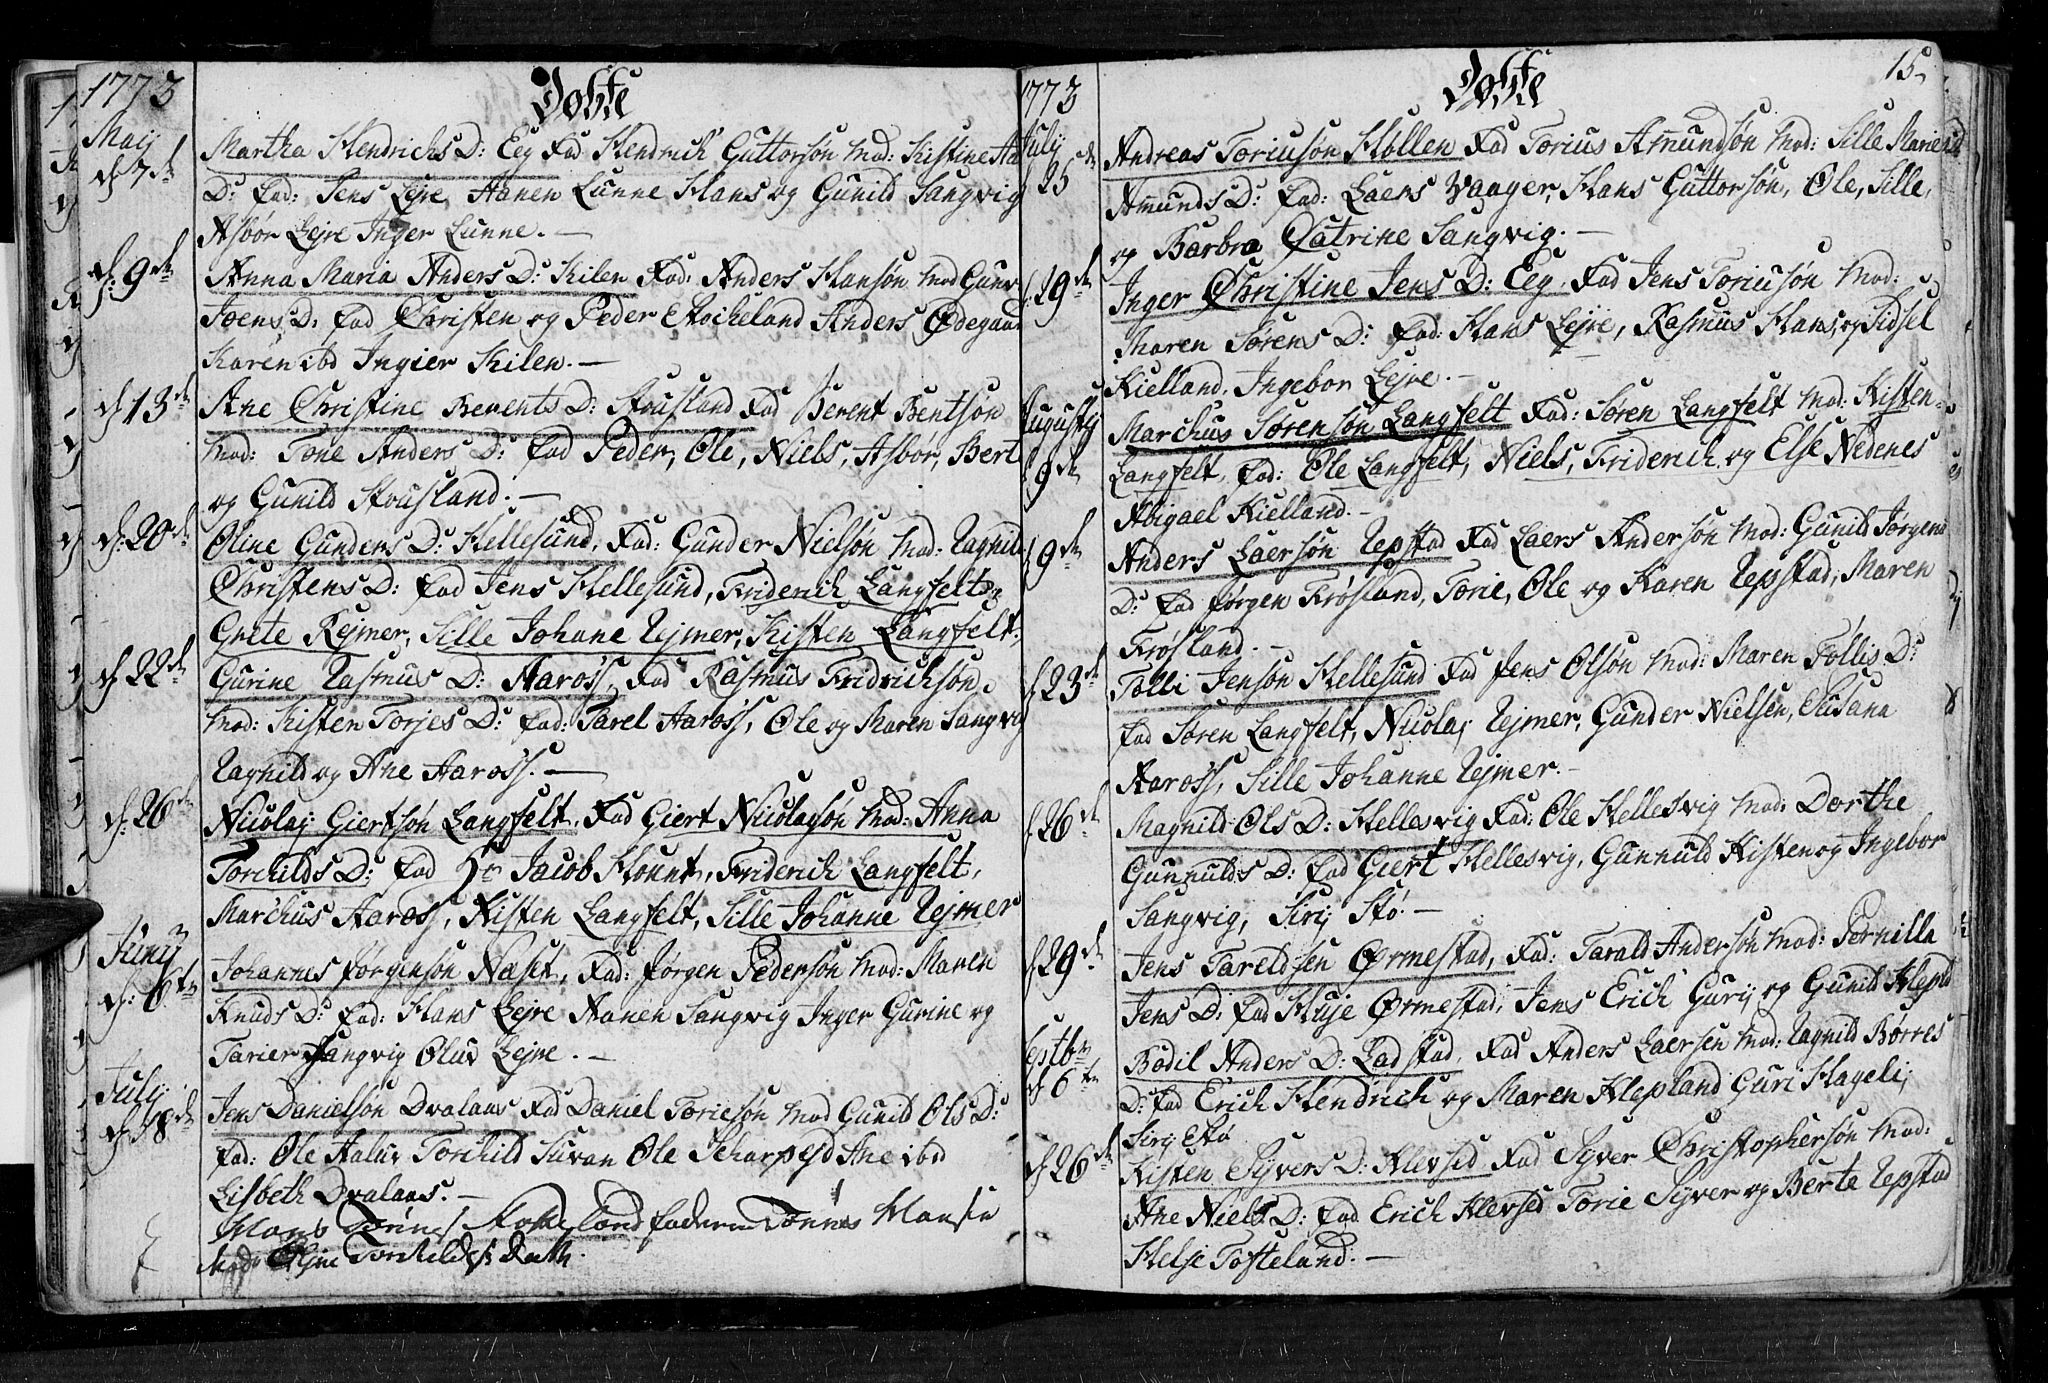 1773
Døbte
Maij
d 7de
Martha HendrichsD: Eeg Fad Hendrich Guttorsøn Mod: Kistine Aa
D: Fad: Jens Lejre Aanen Lunne Hans og Gunild Sangvig
Asbør Lejre Inger Lunne. —
d: 9de
Anna Maria Anders D: Kilen Fad: Anders Hansøn Mod Gunv
Joens D: Fad Christen og Peder Stocheland Anders Ødegaar
Karen ibd Ingier Kilen. —
d 13de
Ane Christine Berents D: Stousland Fad Berent Bentsøn
Mod: Tone Anders D: Fad Peder, Ole, Niels, Asbør, Bert
og Gunild Stousland. —
d: 20de
Oline Gunders D: Hellesund, Fad: Gunder Nielsøn Mod: Ragnild
Christens D: Fad Jens Hellesund, Friderich Langfelt
Grete Rejmer, Sille Johane Rejmer, Kisten Langfelt.
d 22de
Gurine Rasmus D: Aaross, Fad Rasmus Fridrichsøn
Mod: Kisten Torjes D: Fad: Tarel Aaross, Ole og Maren Sangvig
Ragnild og Ane Aaross. —
d: 26de
Nicolaj Giertsøn Langfelt, Fad Giert Nicolaysøn Mod: Anna
Torchilds D: Fad Hr Jacob Mount, Friderich Langfelt,
Marchus Aaross, Kisten Langfelt, Sille Johanne Rejmer
Junij
d: 6te
Johannes Jørgensøn Næset, Fad: Jørgen Pedersøn Mod: Maren
Knuds D: Fad: Hans Lejre Aanen Sangvig Inger Gurine og
Tarier Sangvig Oluv Lejre. —
Julij
d 18de
Jens Danielsøn Dvalaas Fad Daniel Toriesøn Mod Gunild Ols D:
Fad: Ole Aaluv Torchild Suvan Ole Scharpesd Ane ibd
Lisbeth Dvalaas. —
Hans Tønnes Fadderen Tønnes Hansen
Mod: Torkildes Dath.
1773
Døbte
15
Julij
d 25de
Andreas Toriusøn Høllen Fad Torius Amundsøn Mod: Sille Marie
Amunds D: Fad: Laers Vaager, Hans Guttorsøn, Ole, Sille,
og Barbra Catrine Sangvig. —
d 29de
Inger Christine Jens D: Eeg, Fad Jens Toriusøn Mod:
Maren Sørens D: Fad: Hans Lejre, Rasmus Hans, og Sidsel
Kielland. Ingebor Lejre. —
Augustij
d 9de
Marchus Sørensøn Langfelt Fad: Søren Langfelt Mod: Kisten
Langfelt, Fad: Ole Langfelt, Niels, Friderich og Else Nedenes
Abigael Kielland. —
d 9de
Anders Laersøn Repstad Fad Laers Andersøn Mod: Gunild Jørgens
D: Fad Jørgen Frøsland, Torie, Ole og Karen Repstad, Maren
Frøsland. —
d 23de
Tolli Jensøn Hellesund Fad Jens Olsøn Mod: Maren Tollis D:
Fad Søren Langfelt, Nicolaj Rejmer, Gunder Nielsen, Susana
Aaross, Sille Johanne Rejmer. —
d 26de
Magnild Ols D: Hellesvig Fad: Ole Hellesvig Mod: Dorthe
Gunnulds D: Fad Giert Hellesvig, Gunnuld Kisten og Ingebor
Sangvig, Sirij Stø. —
d 29de
Jens Tareldsen Ørmestad, Fad: Tarald Andersøn Mod: Pernilla
Jens D: Fad Huje Ørmestad, Jens Erich Gurij og Gunild Klepld
Septbr
d 6te
Bodil Anders D: Ladstad, Fad Anders Laersen Mod: Ragnild Børres
D: Fad Erich Hendrich og Maren Klepland Guri Hageli,
Sirij Stø
d 26de
Kisten Syvers D: Klevsed Fad Syver Christophersøn Mod:
Ane Niels D: Fad Erich Klevsed Torie Syver og Berte Repstad
Helje Tofteland. —